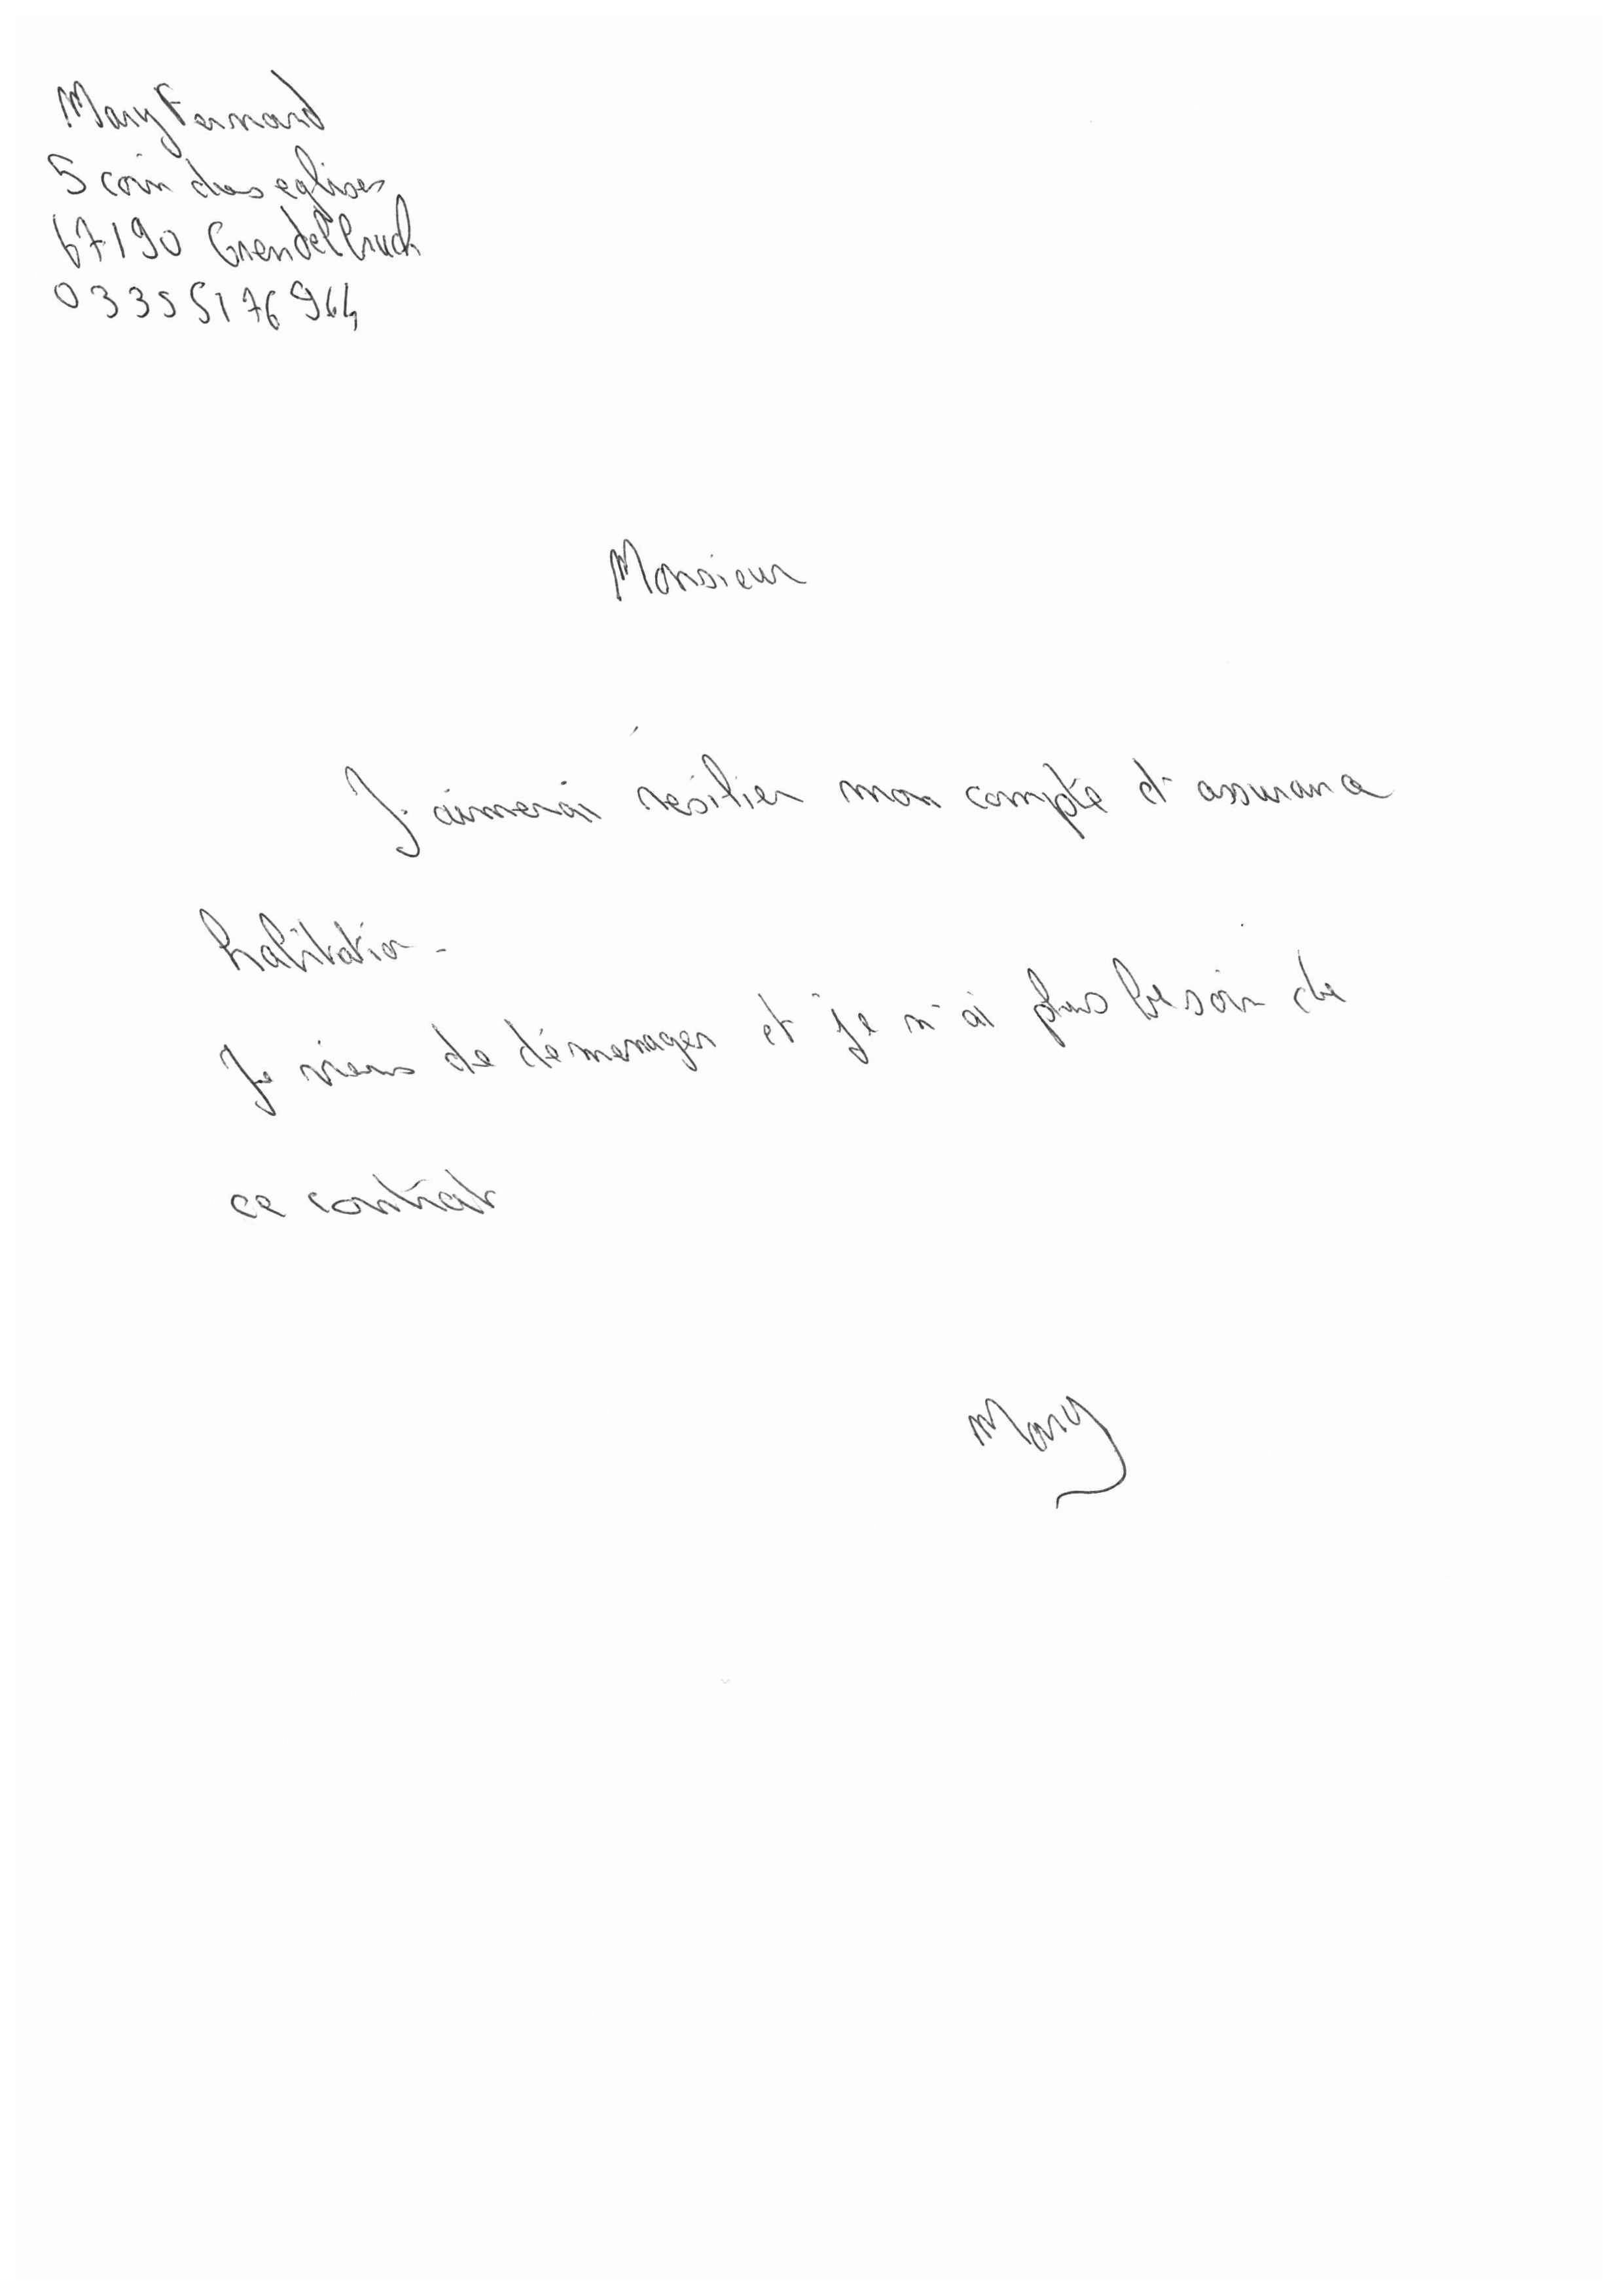 Mary Fernand
5 coin des eglises
67190 Grendelbruch
03355176964
Monsieur
J'aimerai résilier mon compte d'assurance
habitation.
Je viens de démenager et je n'ai plus besoin de
ce contrat
Mary